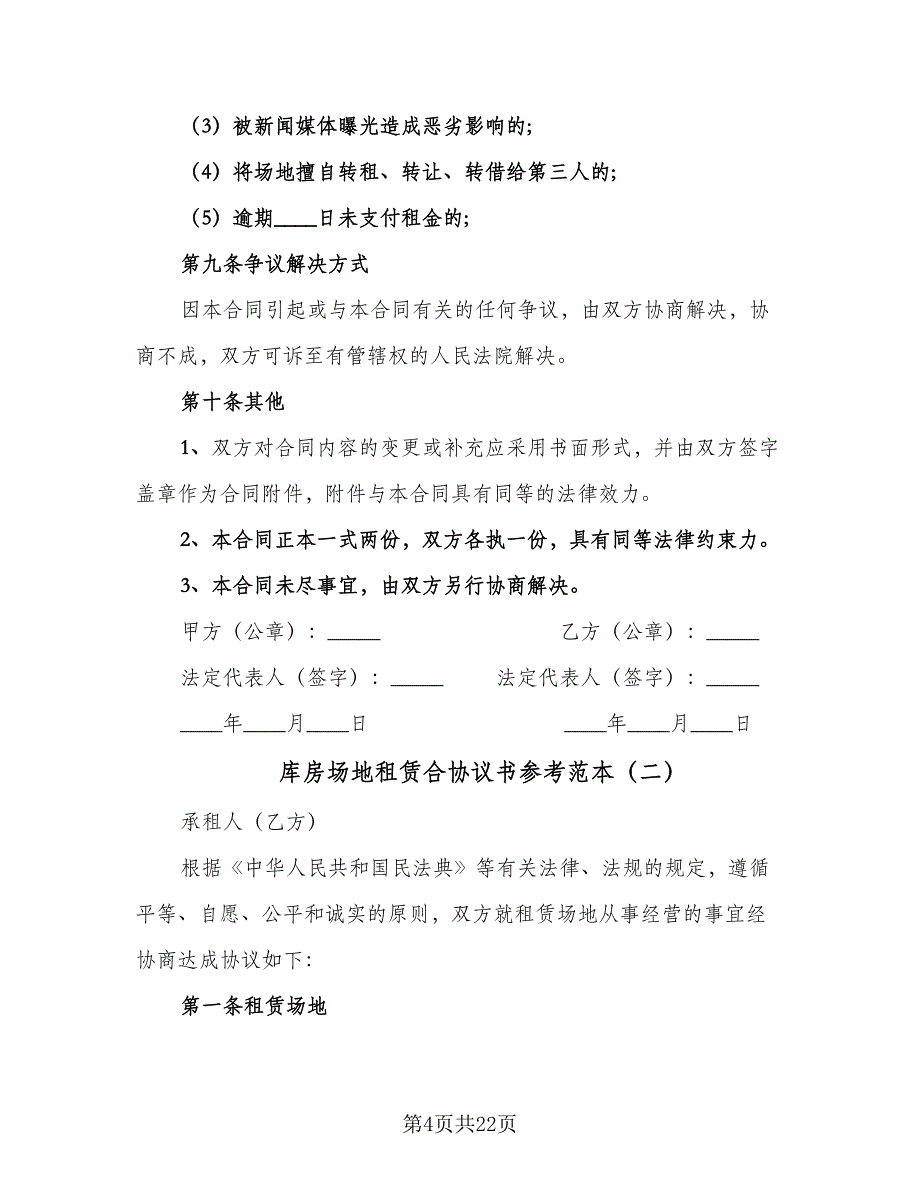 （3）被新闻媒体曝光造成恶劣影响的;
（4）将场地擅自转租、转让、转借给第三人的;
（5）逾期____日未支付租金的;
第九条争议解决方式
因本合同引起或与本合同有关的任何争议，由双方协商解决，协
商不成，双方可诉至有管辖权的人民法院解决。
第十条其他
1、双方对合同内容的变更或补充应采用书面形式，并由双方签字
盖章作为合同附件，附件与本合同具有同等的法律效力。
2、本合同正本一式两份，双方各执一份，具有同等法律约束力。
3、本合同未尽事宜，由双方另行协商解决。
甲方（公章）：_____ 乙方（公章）：_____
法定代表人（签字）：_____ 法定代表人（签字）：_____
____年____月____日 ____年____月____日
库房场地租赁合协议书参考范本（二）
承租人（乙方）
根据《中华人民共和国民法典》等有关法律、法规的规定，遵循
平等、自愿、公平和诚实的原则，双方就租赁场地从事经营的事宜经
协商达成协议如下：
第一条租赁场地
第4页共22页